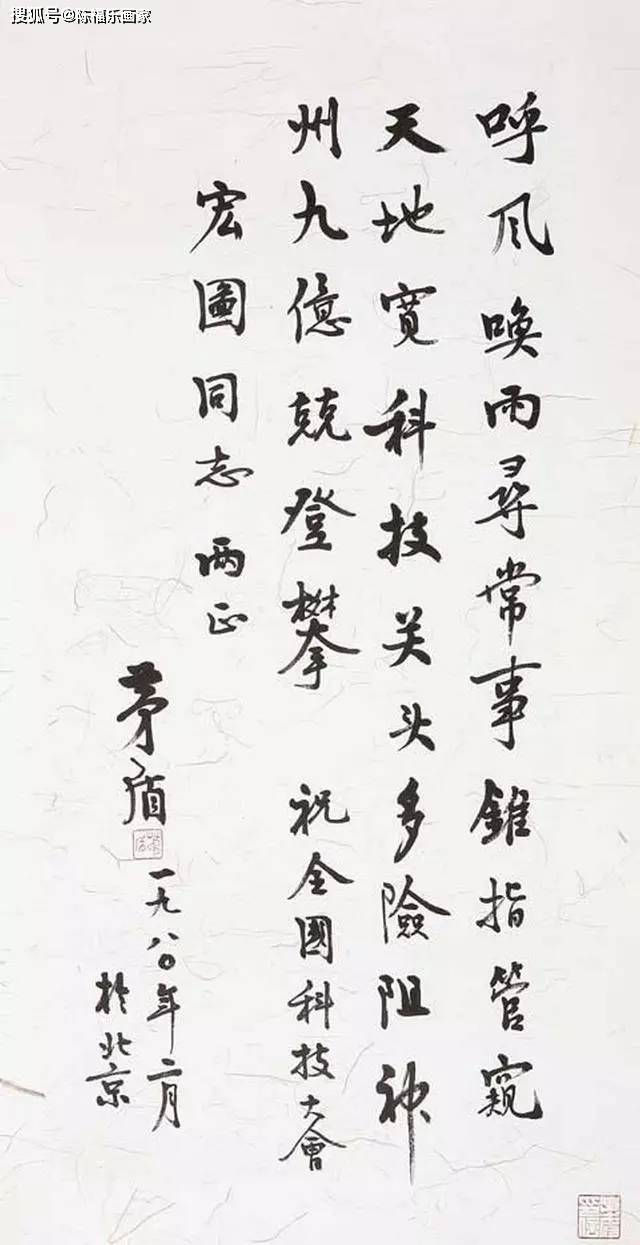 搜狐号@陈福乐画家
呼风唤雨寻常事錐指管窺
天地寬科技关头多險阻神
州九億兢登攀 祝全國科技大會
宏圖同志 两正
茅盾
一九八〇年二月
於北京